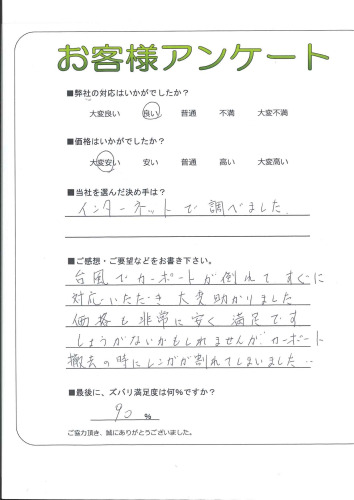 お客様アンケート
■弊社の対応はいかがでしたか？
大変良い 良い 普通 不満 大変不満
■価格はいかがでしたか？
大変安い 安い 普通 高い 大変高い
■当社を選んだ決め手は？
インターネットで調べました。
■ご感想・ご要望などをお書き下さい。
台風でカーポートが倒れてすぐに
対応いただき大変助かりました
価格も非常に安く満足です
しょうがないかもしれませんがカーポート
撤去の時にレンガが割れてしまいました…
■最後に、ズバリ満足度は何%ですか？
90 %
ご協力頂き、誠にありがとうございました。